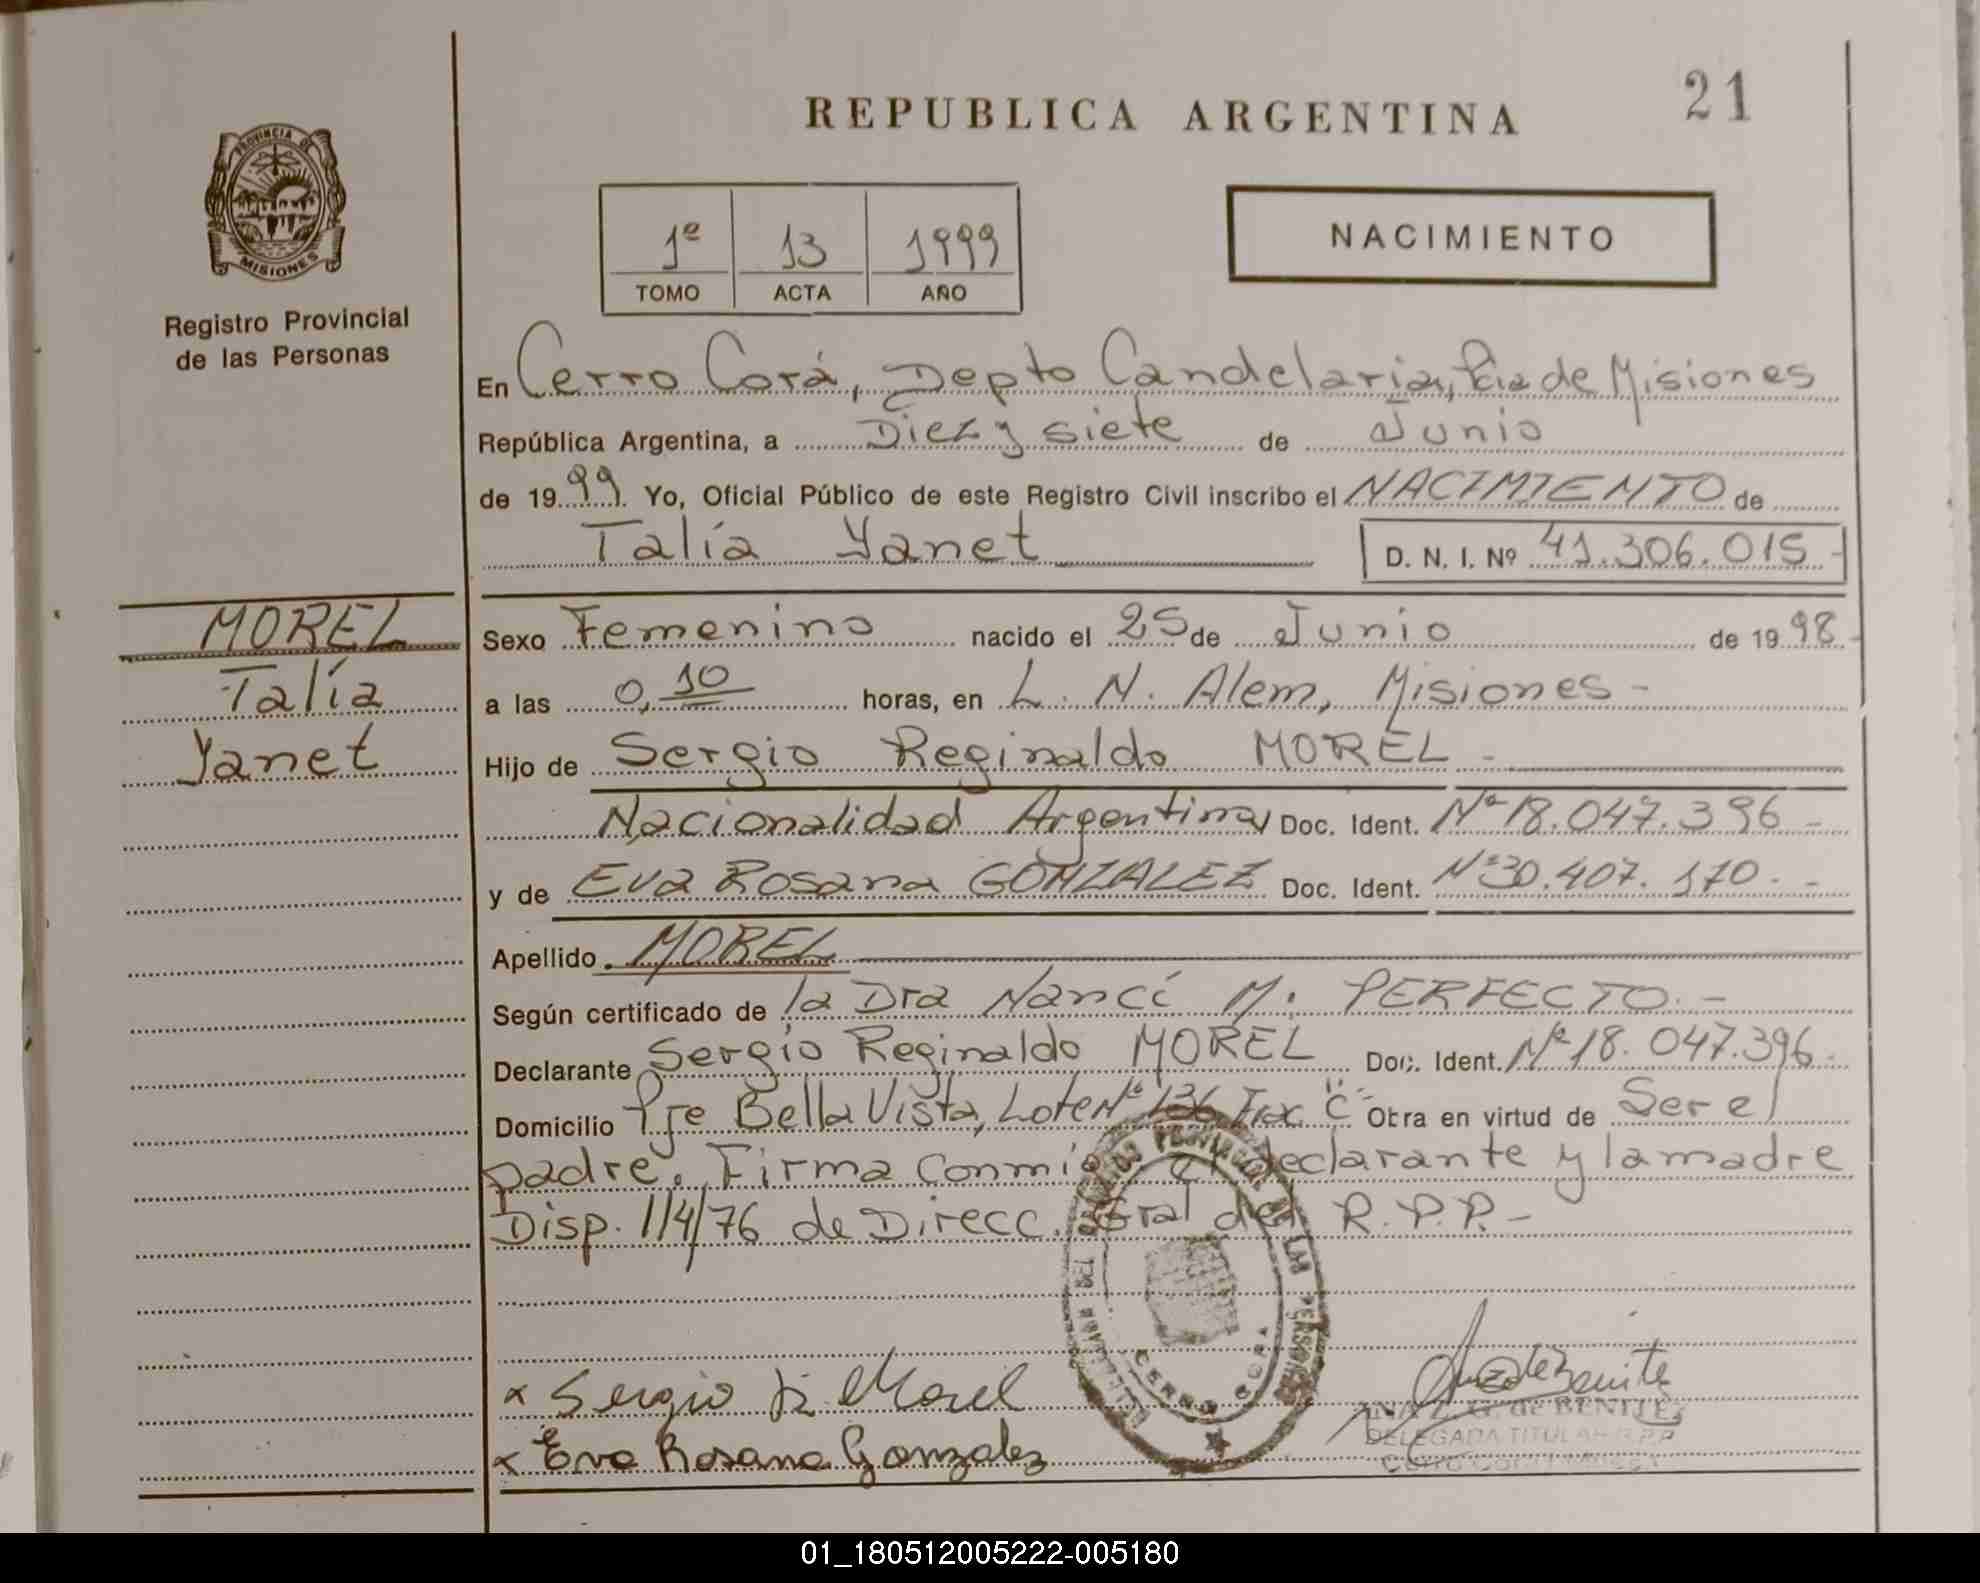 21
REPUBLICA ARGENTINA
PROVINCIA DE
MISIONES
Registro Provincial
de las Personas
1º 13 1999
TOMO ACTA AÑO
NACIMIENTO
En Cerro Corá, Depto Candelaria, Pcia de Misiones
República Argentina, a Diez y siete de Junio
de 1999. Yo, Oficial Público de este Registro Civil inscribo el NACIMIENTO de
Talía Yanet D. N. I. Nº 41.306.015 -
MOREL
Talía
Yanet
Sexo Femenino nacido el 25 de Junio de 1998 -
a las 0,10 horas, en L. N. Alem, Misiones -
Hijo de Sergio Reginaldo MOREL -
Nacionalidad Argentina Doc. Ident. Nº 18.047.396 -
y de Eva Rosana GONZALEZ Doc. Ident. Nº 30.407.170. -
Apellido MOREL
Según certificado de la Dra Nanci M. PERFECTO. -
Declarante Sergio Reginaldo MOREL Doc. Ident. Nº 18.047.396 -
Domicilio Pje Bella Vista, Lote Nº 136 Frac "C" Otra en virtud de Ser el
padre. Firma conmigo el declarante y la madre
Disp. 114/76 de Direcc. Gral del R.P.P. -
DEL REGISTRO PROVINCIAL DE LAS PERSONAS
CERRO CORA
x Sergio R. Morel
x Eva Rosana Gonzalez
ANA Z. G. de BENITEZ
DELEGADA TITULAR R.P.P.
Cerro Corá
01_180512005222-005180